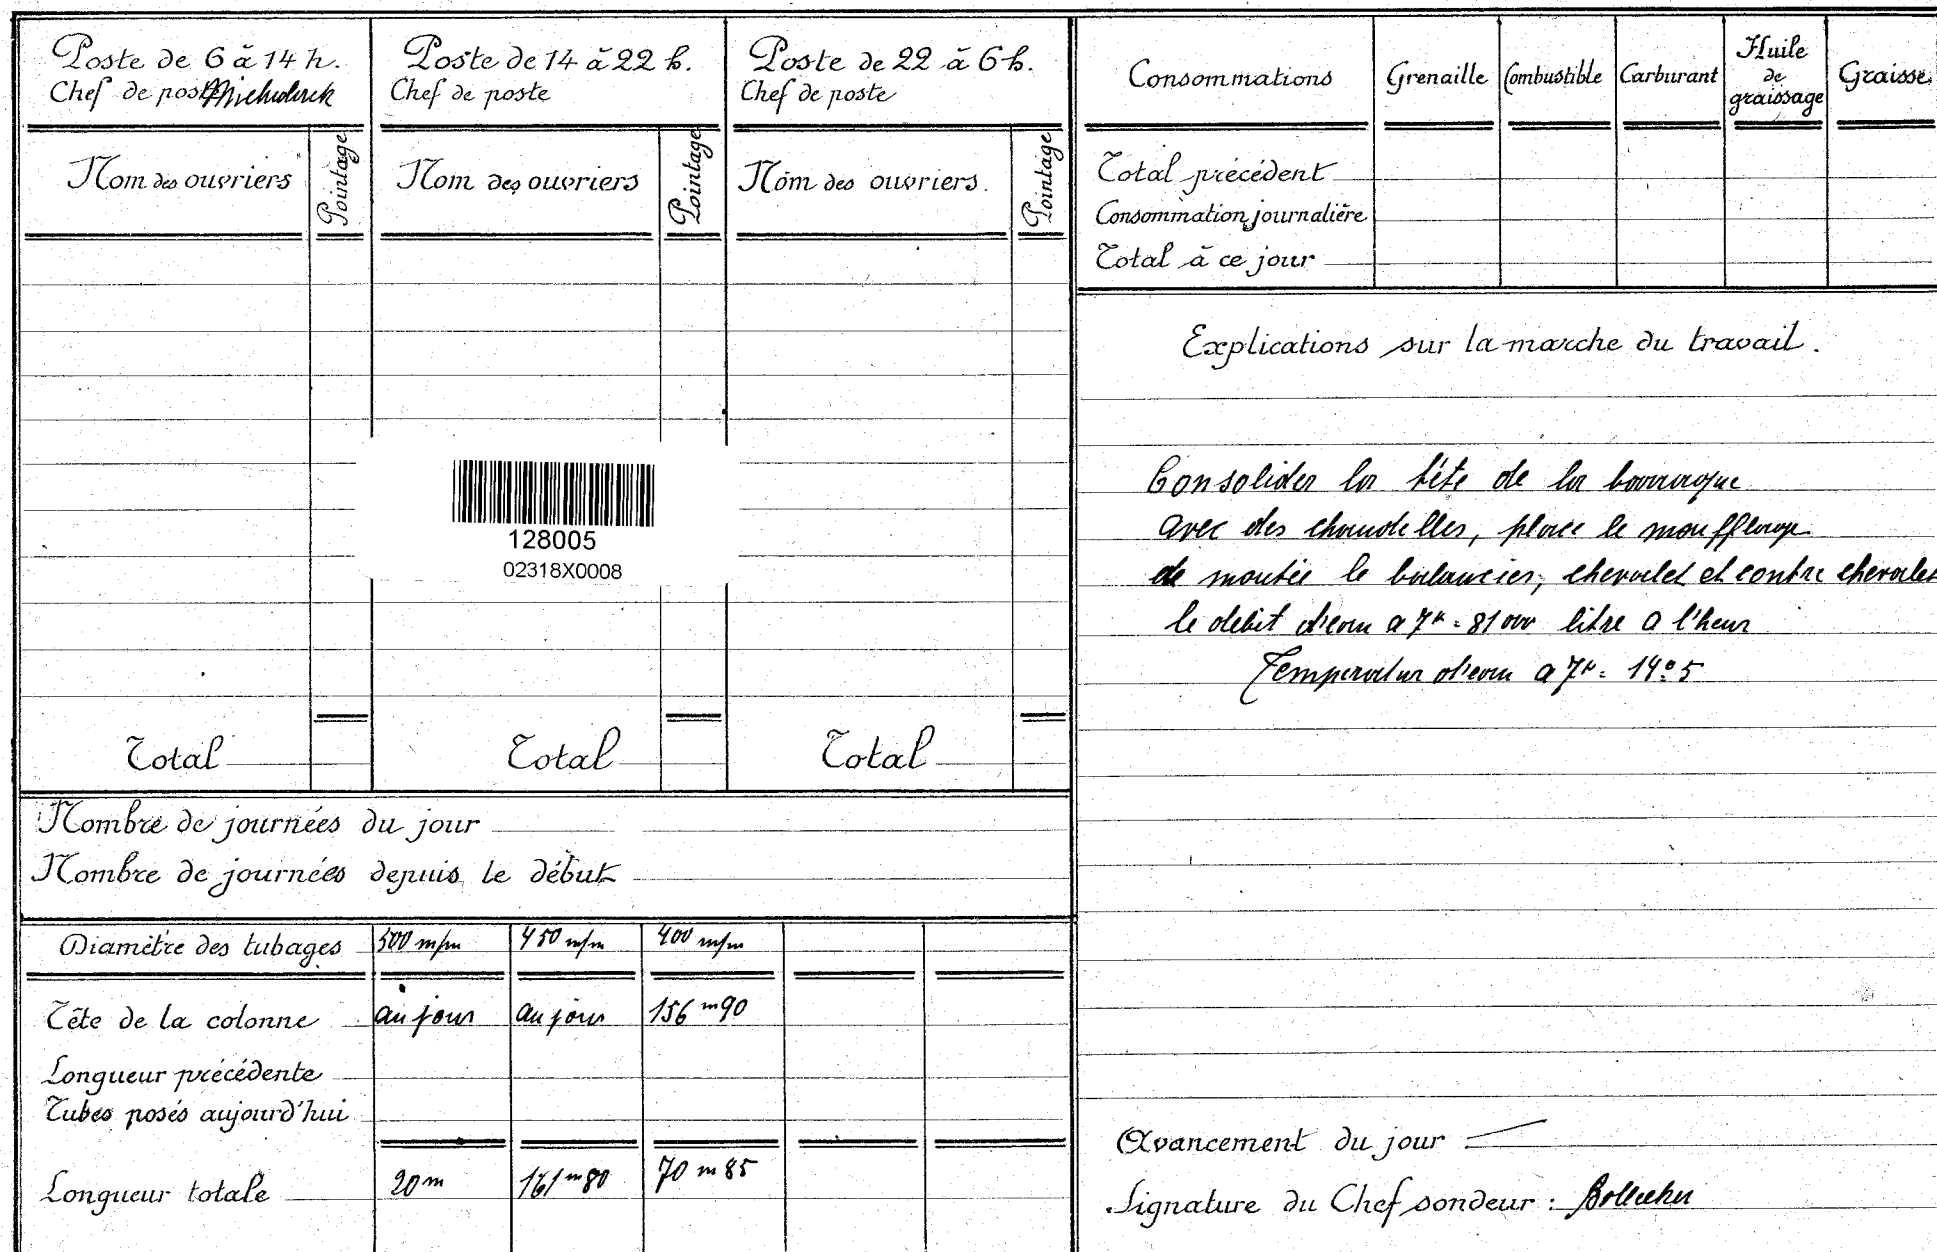 Poste de 6 à 14 h.
Chef de poste
Poste de 14 à 22 h.
Chef de poste
Poste de 22 à 6 h.
Chef de poste
Nom des ouvriers
Pointage
Nom des ouvriers
Pointage
Nom des ouvriers.
Pointage
Total
Total
Total
128005
02318X0008
Nombre de journées du jour
Nombre de journées depuis le début
Diamètre des tubages 500 m/m 450 m/m 400 m/m
Tête de la colonne au jour au jour 156 m 90
Longueur précédente
Tubes posés aujourd'hui
Longueur totale 20 m 161 m 80 70 m 85
Consommations Grenaille Combustible Carburant Huile de graissage Graisse
Total précédent
Consommation journalière
Total à ce jour
Explications sur la marche du travail.
Consolider la tête de la barraque
avec des chandelles, place le moufflage
de montée le balancier, chevalet et contre chevalet
le debit d'eau a 7h = 81000 litre a l'heur
Temperatur d'eau a 7h = 14°5
Avancement du jour —
Signature du Chef sondeur :